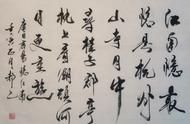 江南憶最
憶是杭州
山寺月中
尋桂子郡亭
枕上看潮頭何
日更重遊
唐白居易憶江南